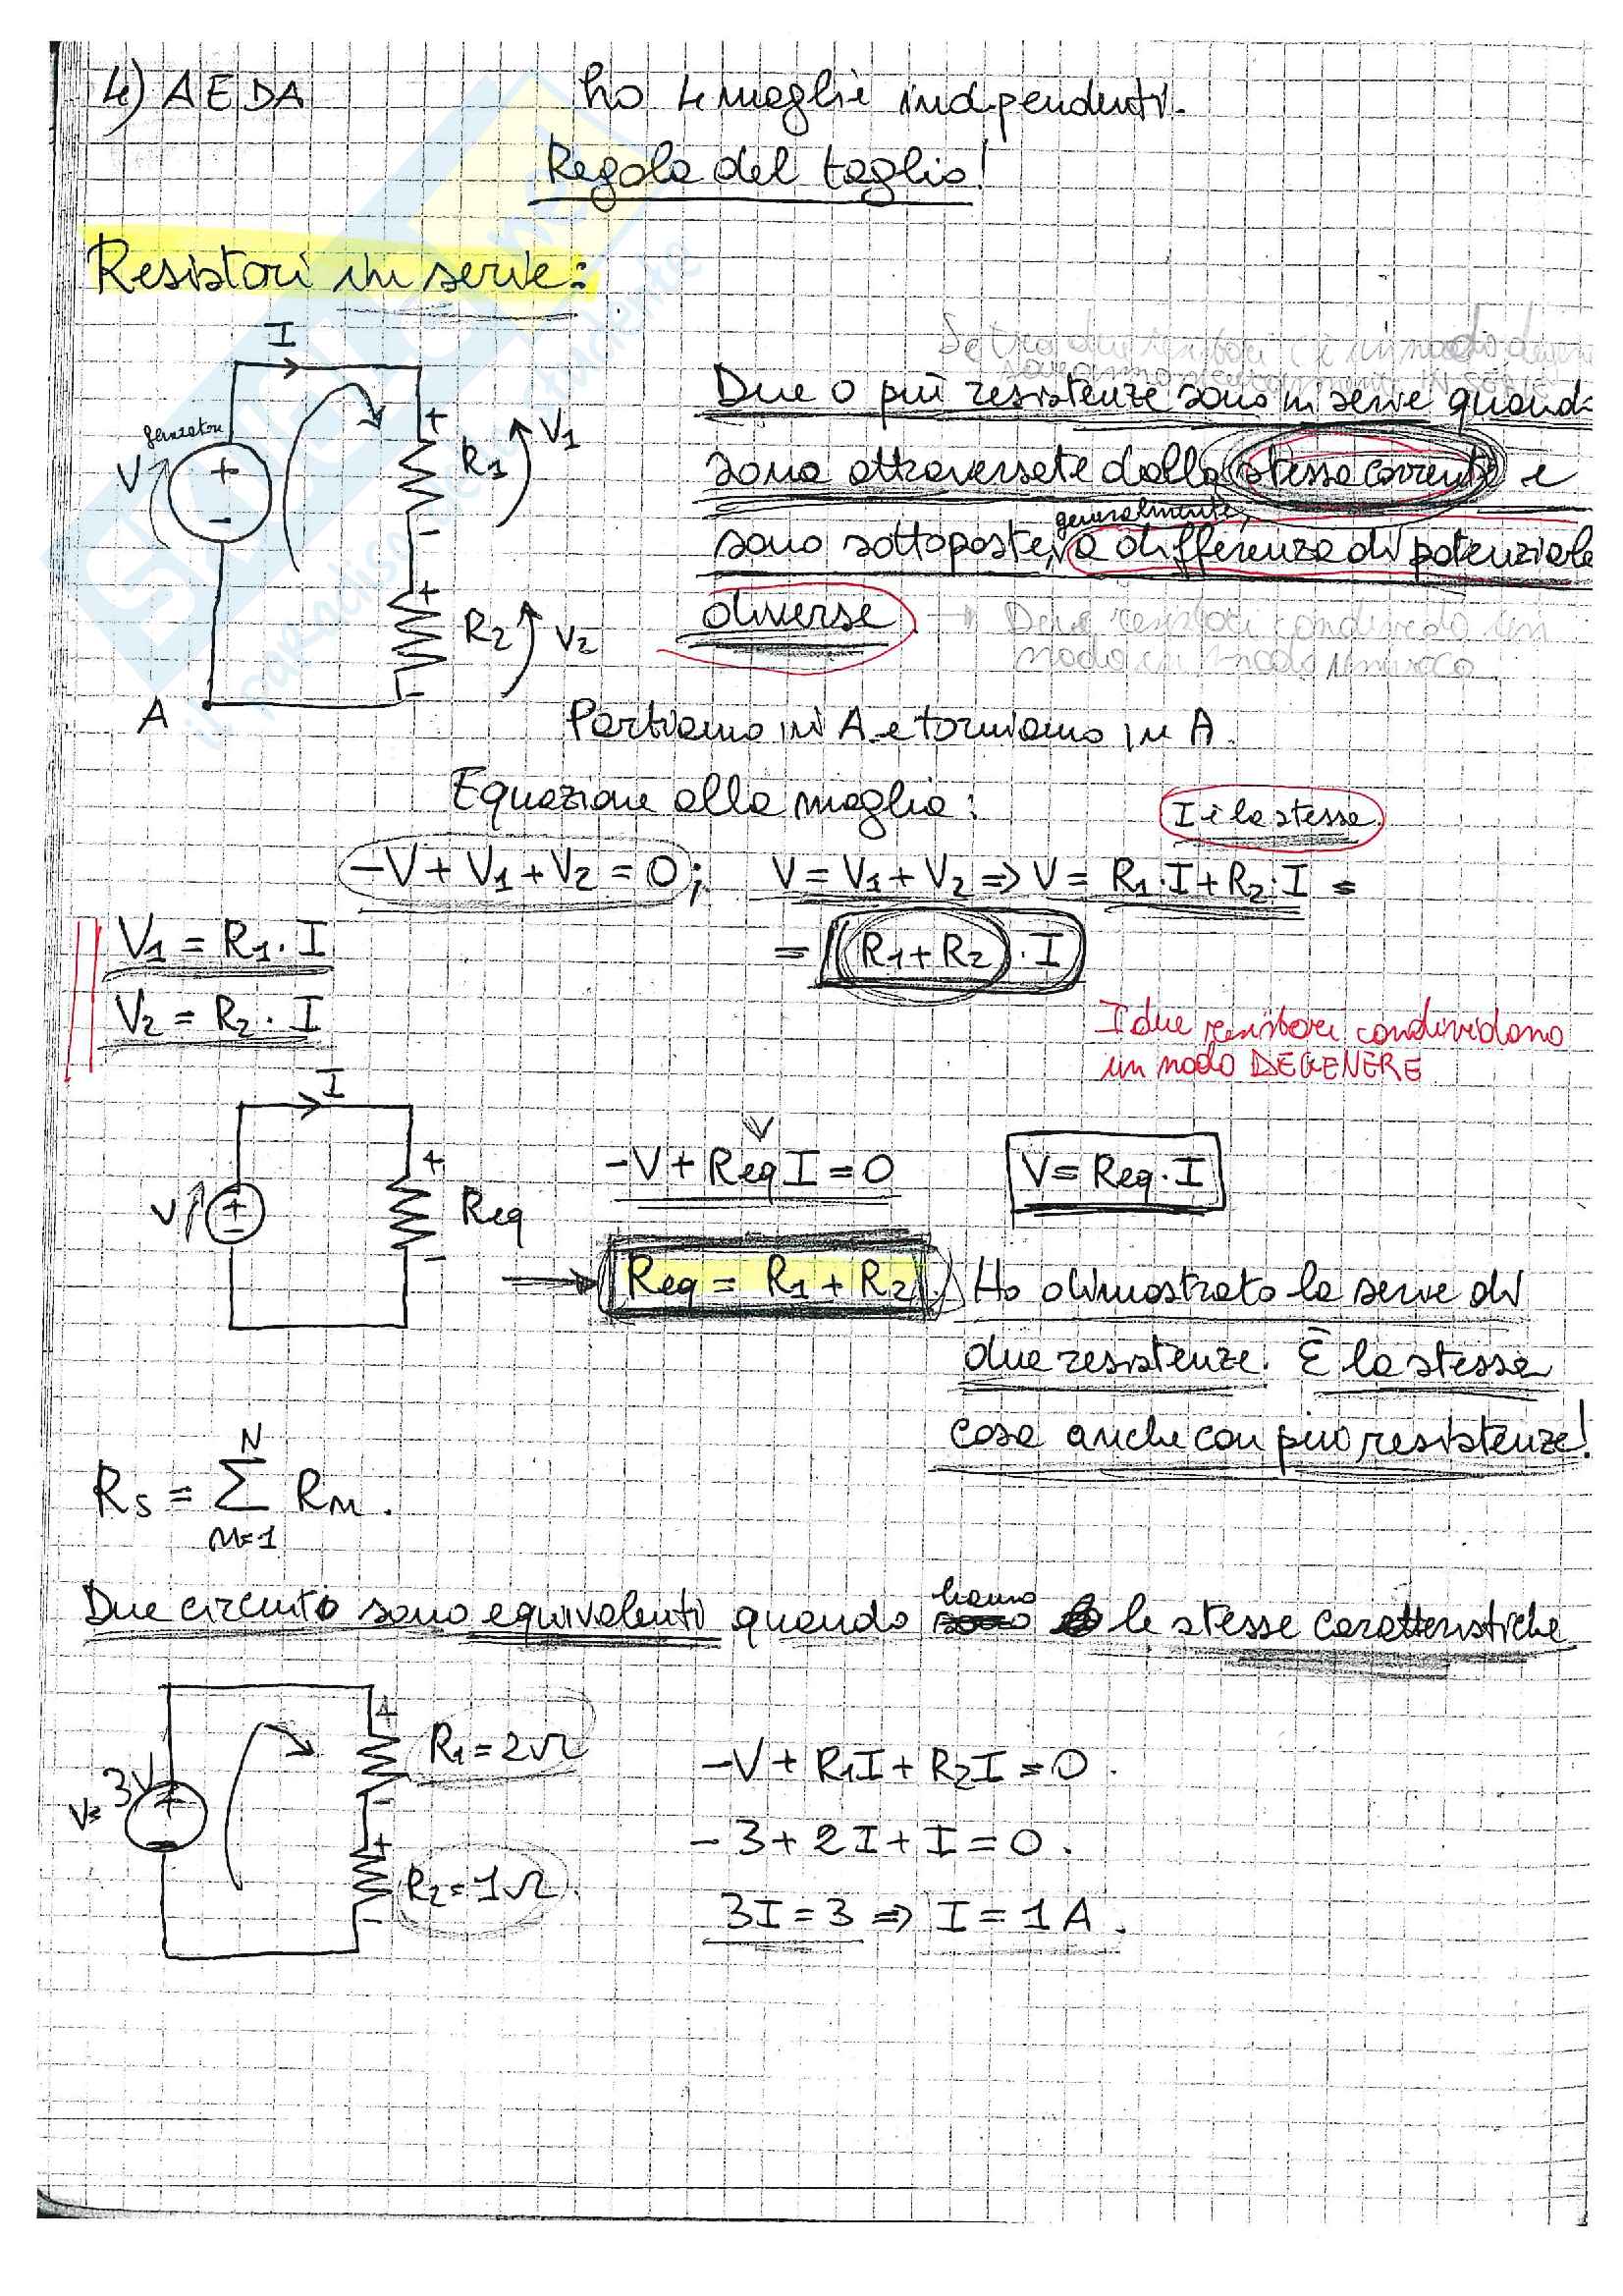 4) AEDA ho 4 maglie indipendenti.
Regola del taglio!
Resistori in serie:
I
Se tra due resistori c'è un nodo degenere
saranno sicuramente IN SERIE
Due o più resistenze sono in serie quando
sono attraversate dalla stessa corrente e
generalmente,
sono sottoposte, a differenza di potenziale
diverse → Due resistori condividono un
nodo in modo univoco.
generatore
V
+
-
+
R1
V1
-
+
R2
V2
-
A
Partiamo in A e torniamo in A.
Equazione alla maglia:
I è la stessa.
-V + V1 + V2 = 0; V = V1 + V2 => V = R1·I + R2·I =
V1 = R1·I
= (R1+R2)·I
V2 = R2·I
I due resistori condividono
un nodo DEGENERE
I
V
+
-
+
Req
-
V
-V + Req I = 0
V = Req·I
Req = R1 + R2. Ho dimostrato la serie di
due resistenze. È la stessa
cosa anche con più resistenze!
N
Rs = Σ Rn.
n=1
hanno
Due circuiti sono equivalenti quando le stesse caratteristiche
V= 3V
+
R1 = 2Ω
-
+
R2 = 1Ω.
-
-V + R1I + R2I = 0.
-3 + 2I + I = 0.
3I = 3 => I = 1A.